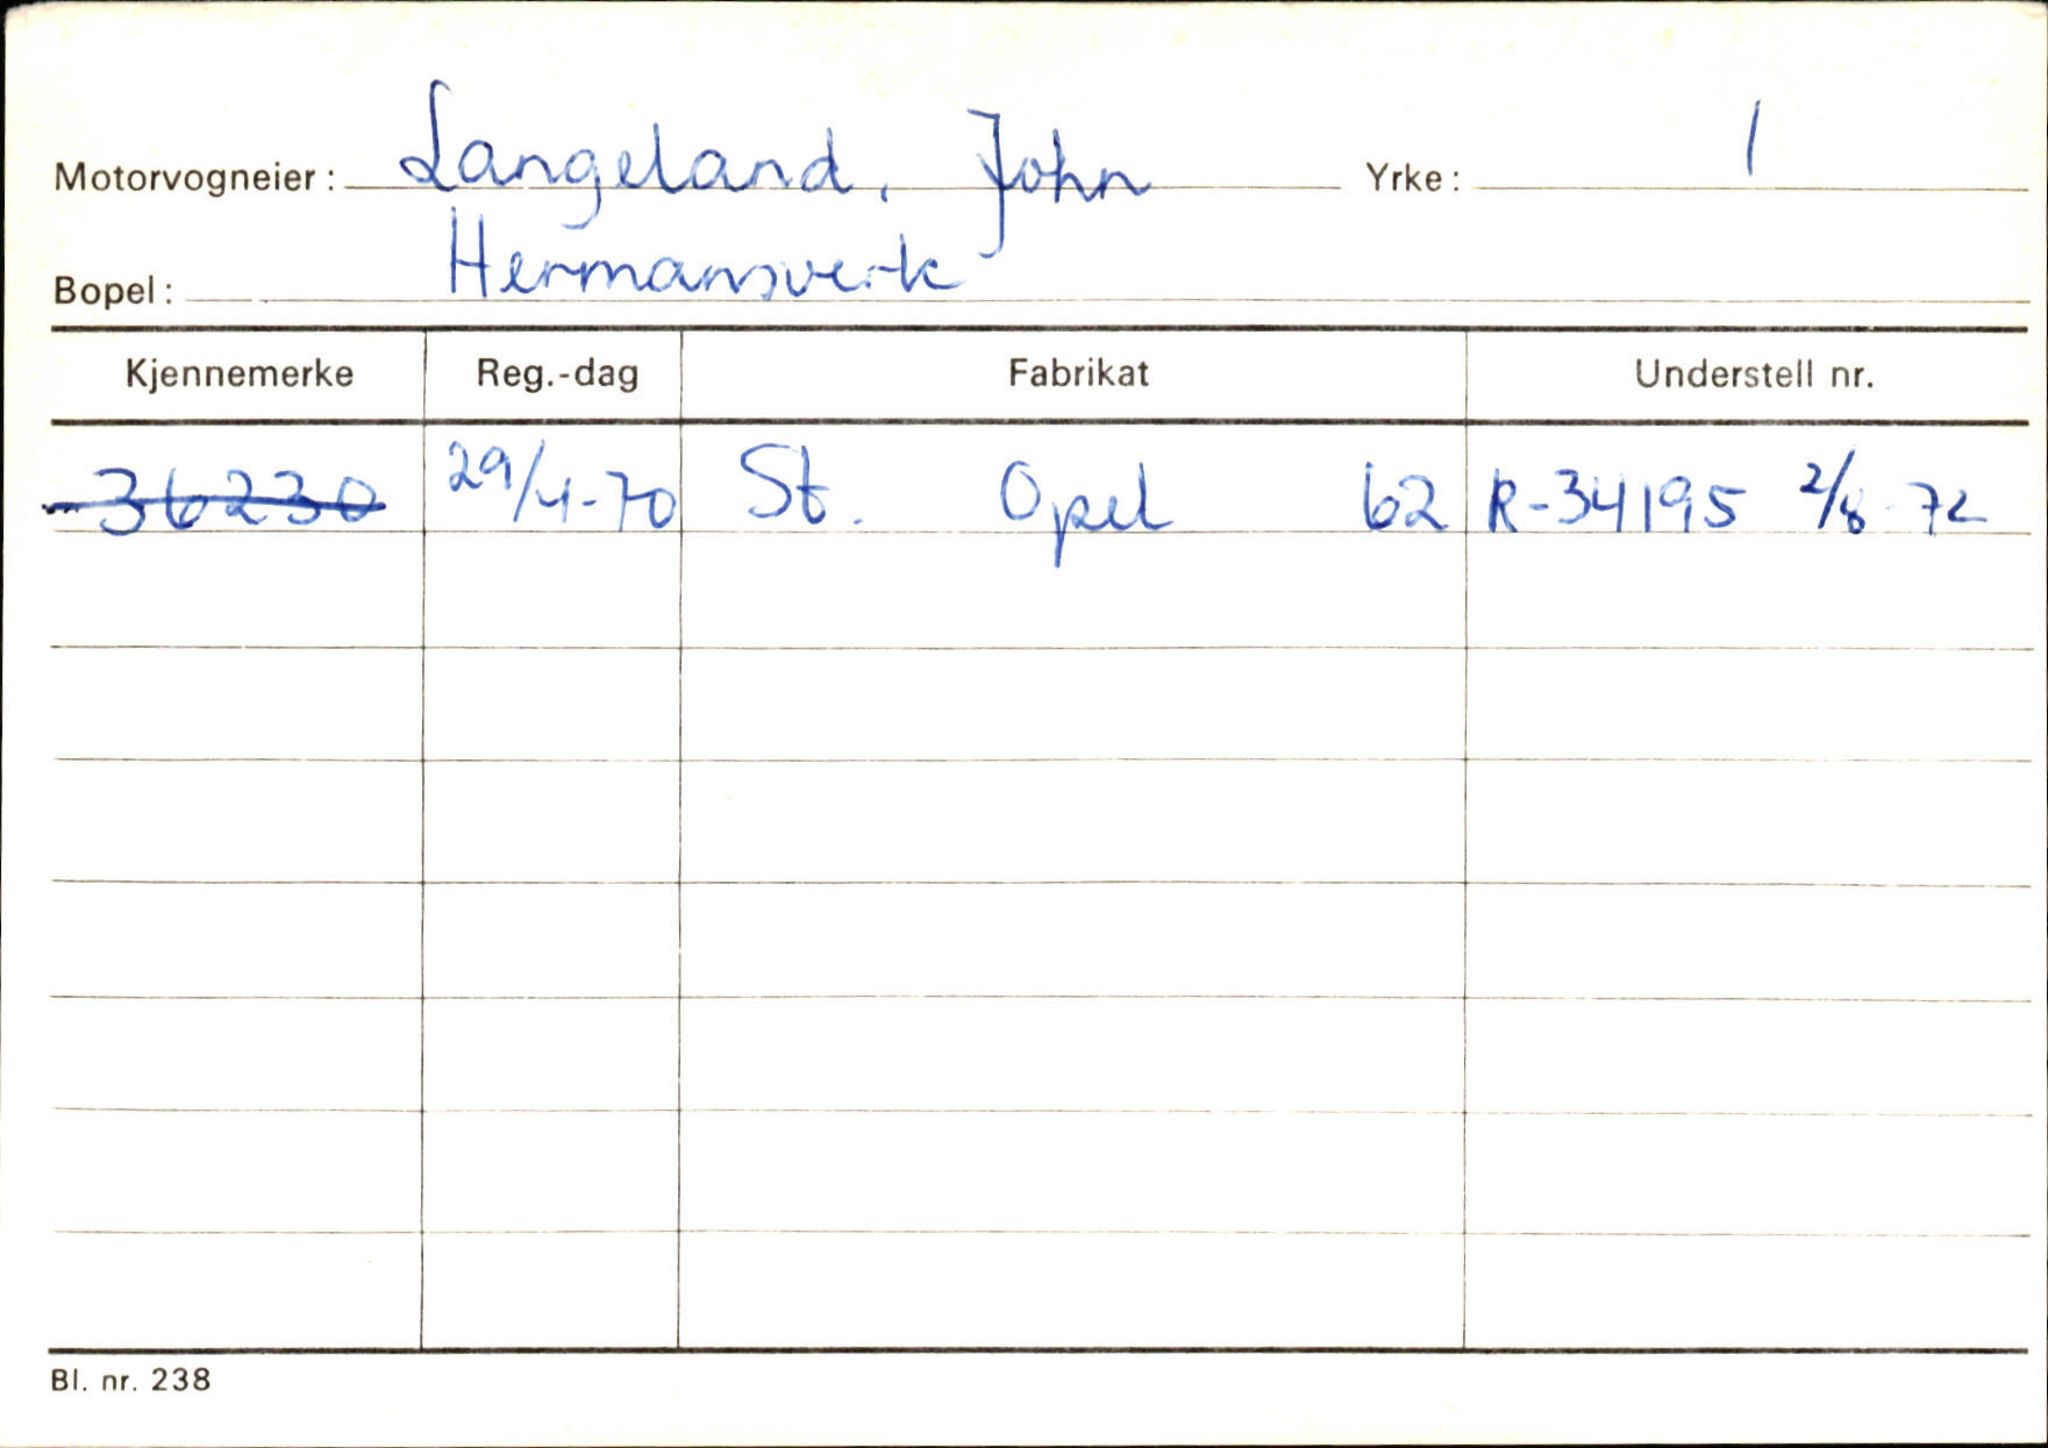 Motorvogneier: Langeland, John Yrke: 1
Bopel: Hermansverk
Kjennemerke Reg.-dag Fabrikat Understell nr.
36230 29/4-70 St. Opel 62 R-34195 2/8-72
Bl. nr. 238